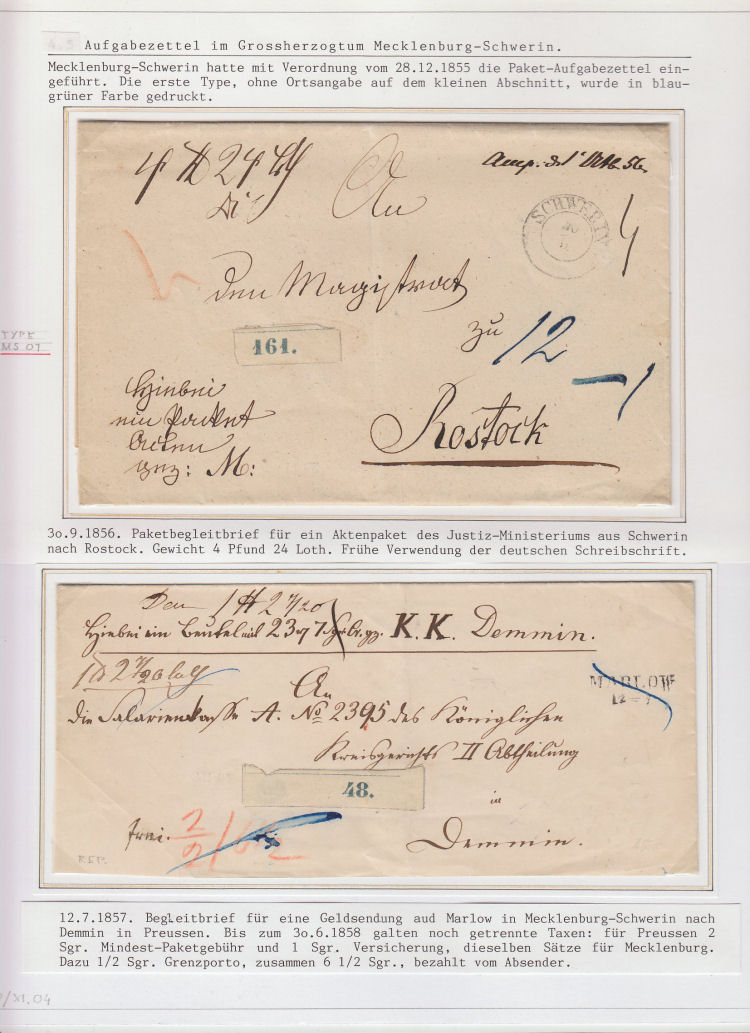 4.5 Aufgabezettel im Grossherzogtum Mecklenburg-Schwerin.
Mecklenburg-Schwerin hatte mit Verordnung vom 28.12.1855 die Paket-Aufgabezettel ein-
geführt. Die erste Type, ohne Ortsangabe auf dem kleinen Abschnitt, wurde in blau-
grüner Farbe gedruckt.
An
SCHWERIN
den Magistrat
zu 12
161.
TYPE
MS 01
Hiebei
ein Packet
Acten
gez: M:
Rostock
3o.9.1856. Paketbegleitbrief für ein Aktenpaket des Justiz-Ministeriums aus Schwerin
nach Rostock. Gewicht 4 Pfund 24 Loth. Frühe Verwendung der deutschen Schreibschrift.
Hiebei ein Beutel mit 23 K. K. Demmin.
An
MARLOW
die Salarienkasse A. No 2395 des Königlichen
Kreisgerichts II Abtheilung
48.
in
frei.
Demmin.
12.7.1857. Begleitbrief für eine Geldsendung aud Marlow in Mecklenburg-Schwerin nach
Demmin in Preussen. Bis zum 3o.6.1858 galten noch getrennte Taxen: für Preussen 2
Sgr. Mindest-Paketgebühr und 1 Sgr. Versicherung, dieselben Sätze für Mecklenburg.
Dazu 1/2 Sgr. Grenzporto, zusammen 6 1/2 Sgr., bezahlt vom Absender.
/XI.04